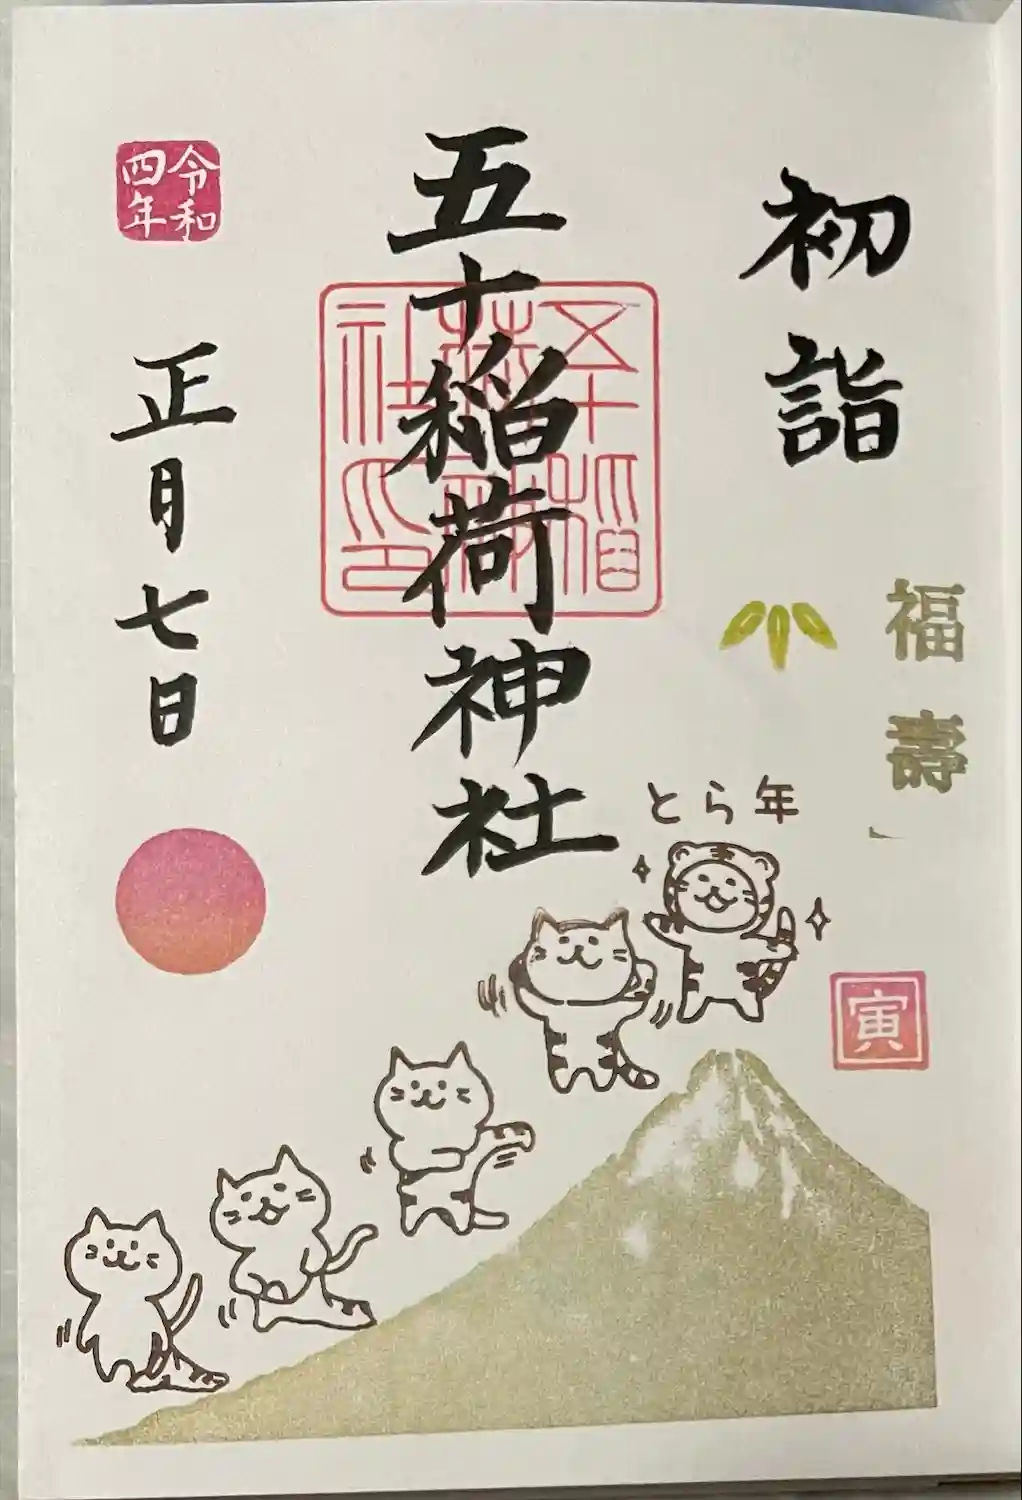 初詣
福壽
五十稲荷神社
五十稲荷神社印
とら年
寅
令和四年
正月七日